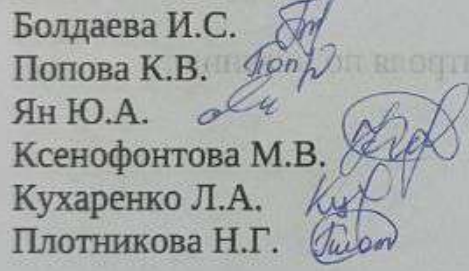 Болдаева И.С.
Попова К.В.
Ян Ю.А.
Ксенофонтова М.В.
Кухаренко Л.А.
Плотникова Н.Г.